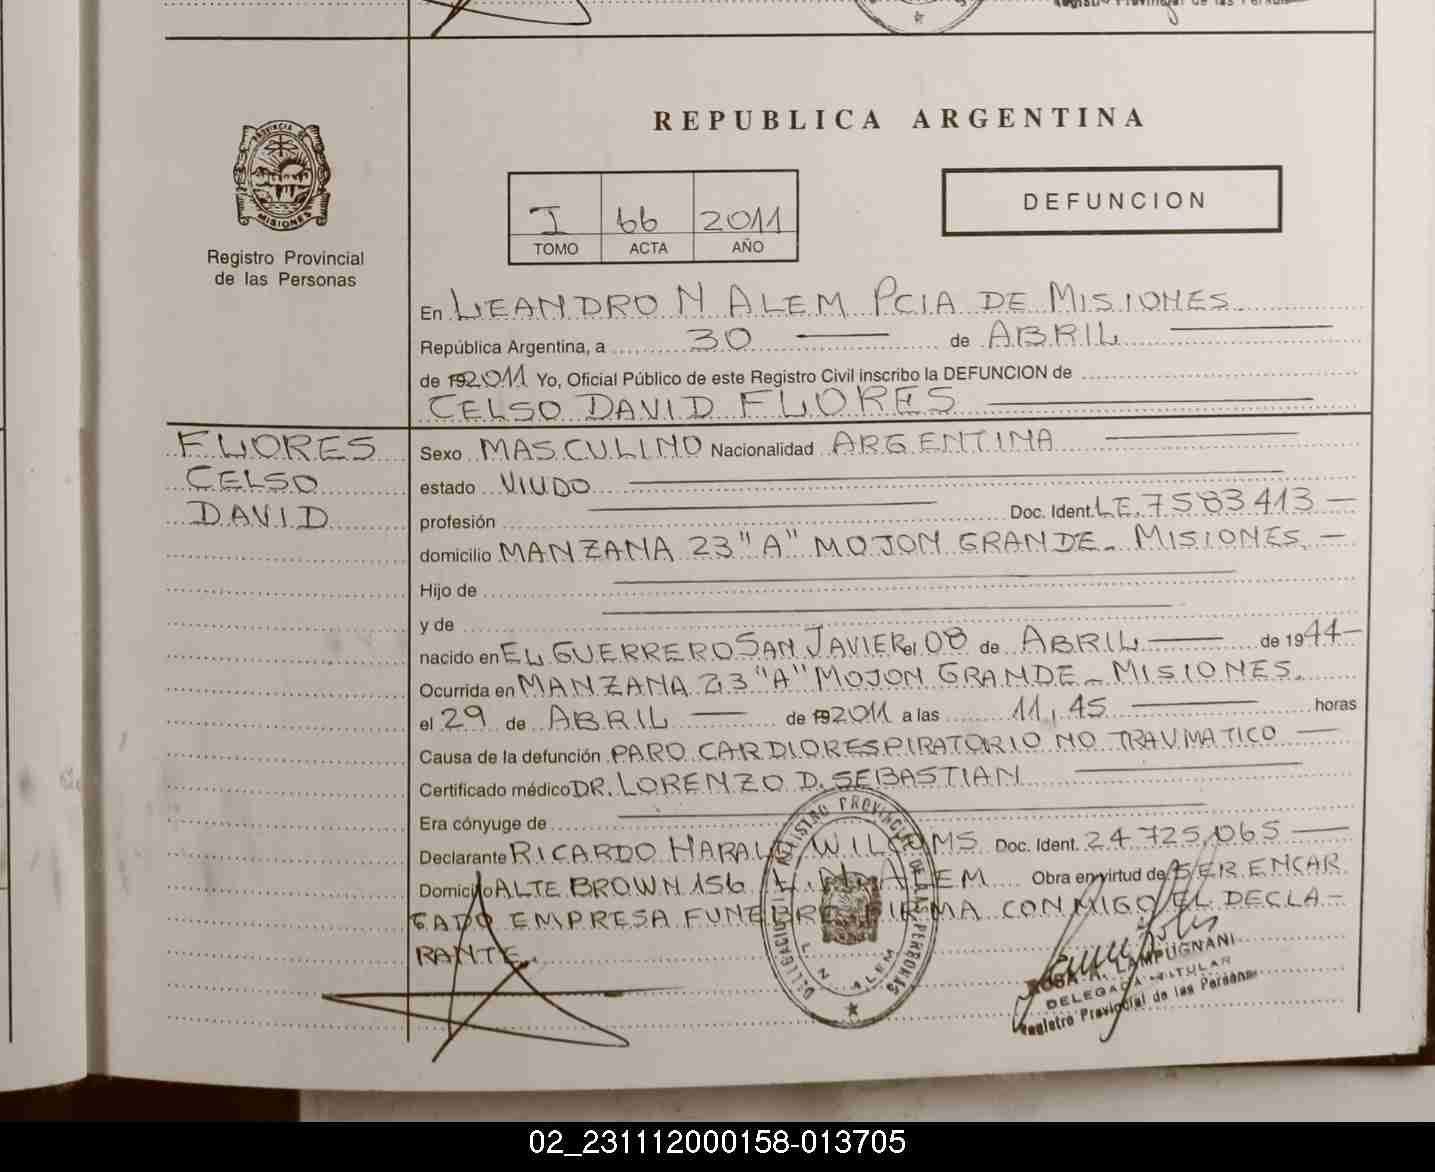 REPUBLICA ARGENTINA
PROVINCIA DE
MISIONES
Registro Provincial
de las Personas
I 66 2011
TOMO ACTA AÑO
DEFUNCION
En LEANDRO N ALEM PCIA DE MISIONES.
República Argentina, a 30 de ABRIL
de 192011 Yo, Oficial Público de este Registro Civil inscribo la DEFUNCION de
CELSO DAVID FLORES
FLORES
CELSO
DAVID
Sexo MASCULINO Nacionalidad ARGENTINA
estado VIUDO
profesión Doc. Ident. LE.7583413-
domicilio MANZANA 23 "A" MOJON GRANDE- MISIONES.-
Hijo de
y de
nacido en EL GUERRERO SAN JAVIER el 08 de ABRIL de 1944-
Ocurrida en MANZANA 23 "A" MOJON GRANDE- MISIONES.
el 29 de ABRIL de 192011 a las 11,45 horas
Causa de la defunción PARO CARDIORESPIRATORIO NO TRAUMATICO
Certificado médico DR. LORENZO D. SEBASTIAN
Era cónyuge de
Declarante RICARDO HARALD WILCOMS Doc. Ident. 24725065
Domicilio ALTE BROWN 156 L. N. ALEM Obra en virtud de SER ENCAR
GADO EMPRESA FUNEBRE. FIRMA CONMIGO EL DECLA-
RANTE.
REGISTRO PROVINCIAL DE LAS PERSONAS
DELEGACION
L. N. ALEM
ROSA A. LAMPUGNANI
DELEGADA TITULAR
Registro Provincial de las Personas
02_231112000158-013705